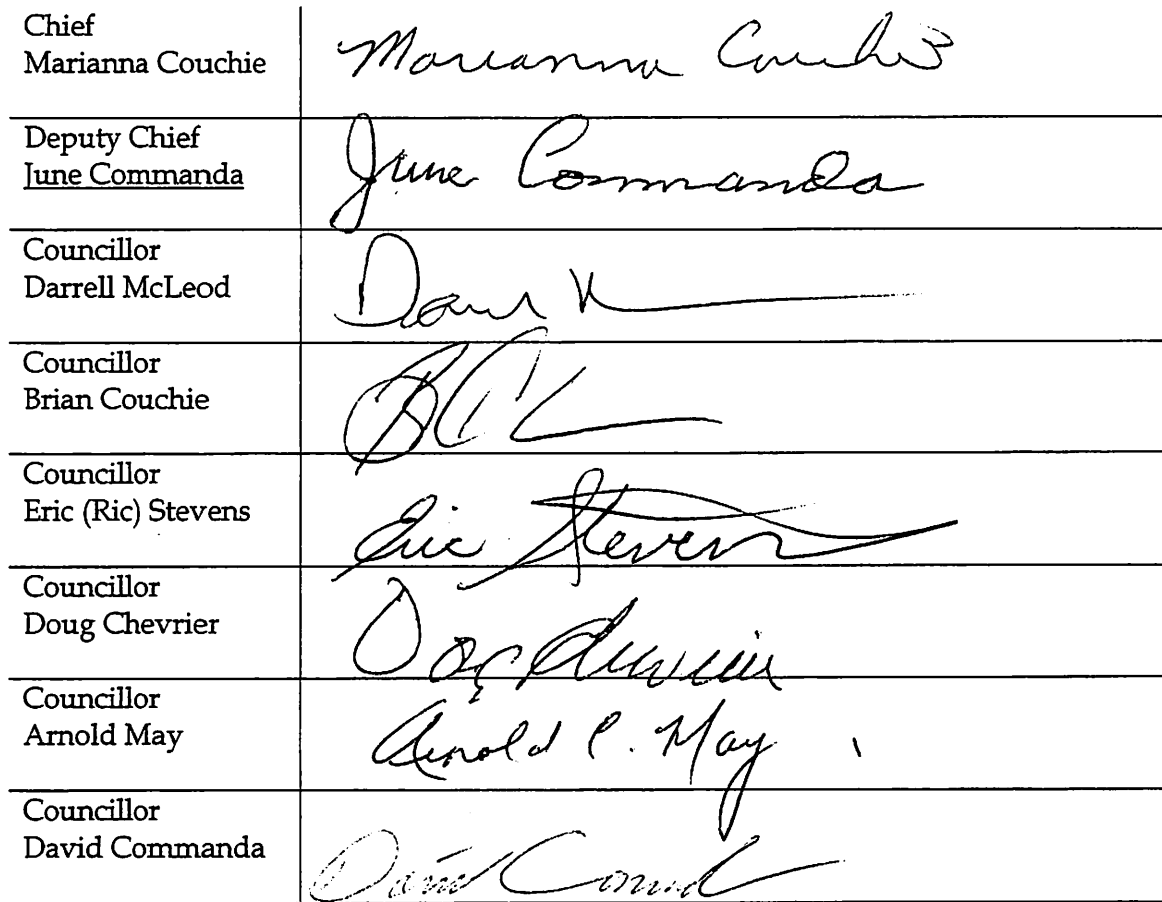 Chief
Marianna Couchie
Marianna Couchie
Deputy Chief
June Commanda
June Commanda
Councillor
Darrell McLeod
Councillor
Brian Couchie
BC
Councillor
Eric (Ric) Stevens
Eric Stevens
Councillor
Doug Chevrier
Doug Chevrier
Councillor
Arnold May
Arnold C. May
Councillor
David Commanda
David